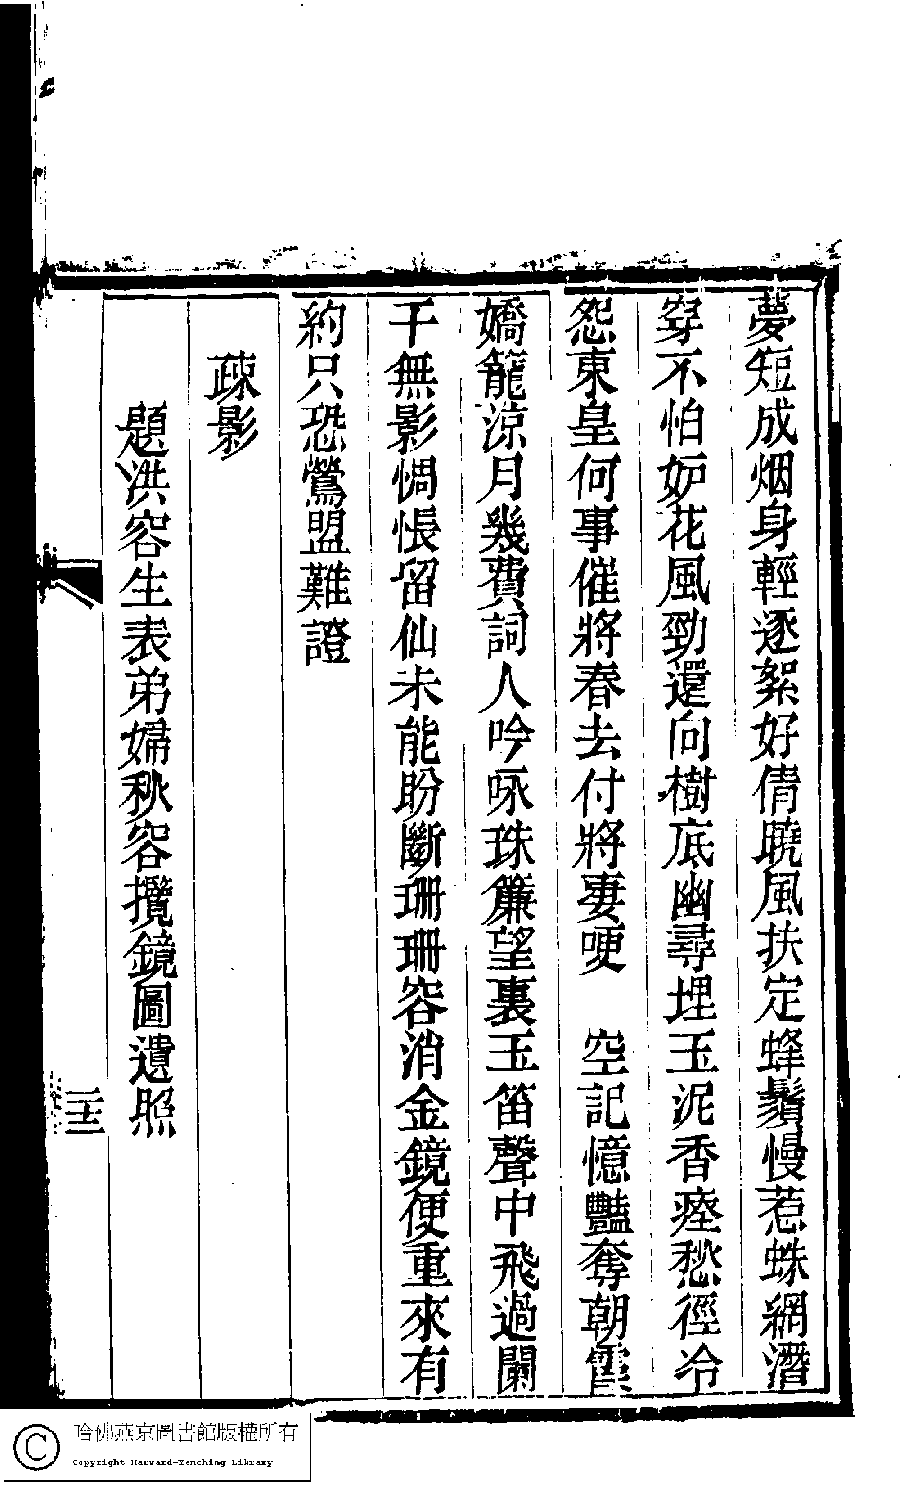 夢短成烟身輕逐絮好倩曉風扶定蜂鬚慢惹蛛網潛
穿不怕妒花風勁還向樹底幽尋埋玉泥香瘞愁徑冷
怨東皇何事催將春去付將妻哽　空記憶豔奪朝霞
嬌籠涼月幾費詞人吟咏珠簾望裏玉笛聲中飛過闌
干無影惆悵留仙未能盼斷珊珊容消金鏡便重來有
約只恐鶯盟難證
疎影
題洪容生表弟婦秋容攬鏡圖遺照
二十三
哈佛燕京圖書館版權所有
Copyright Harvard-Yenching Library